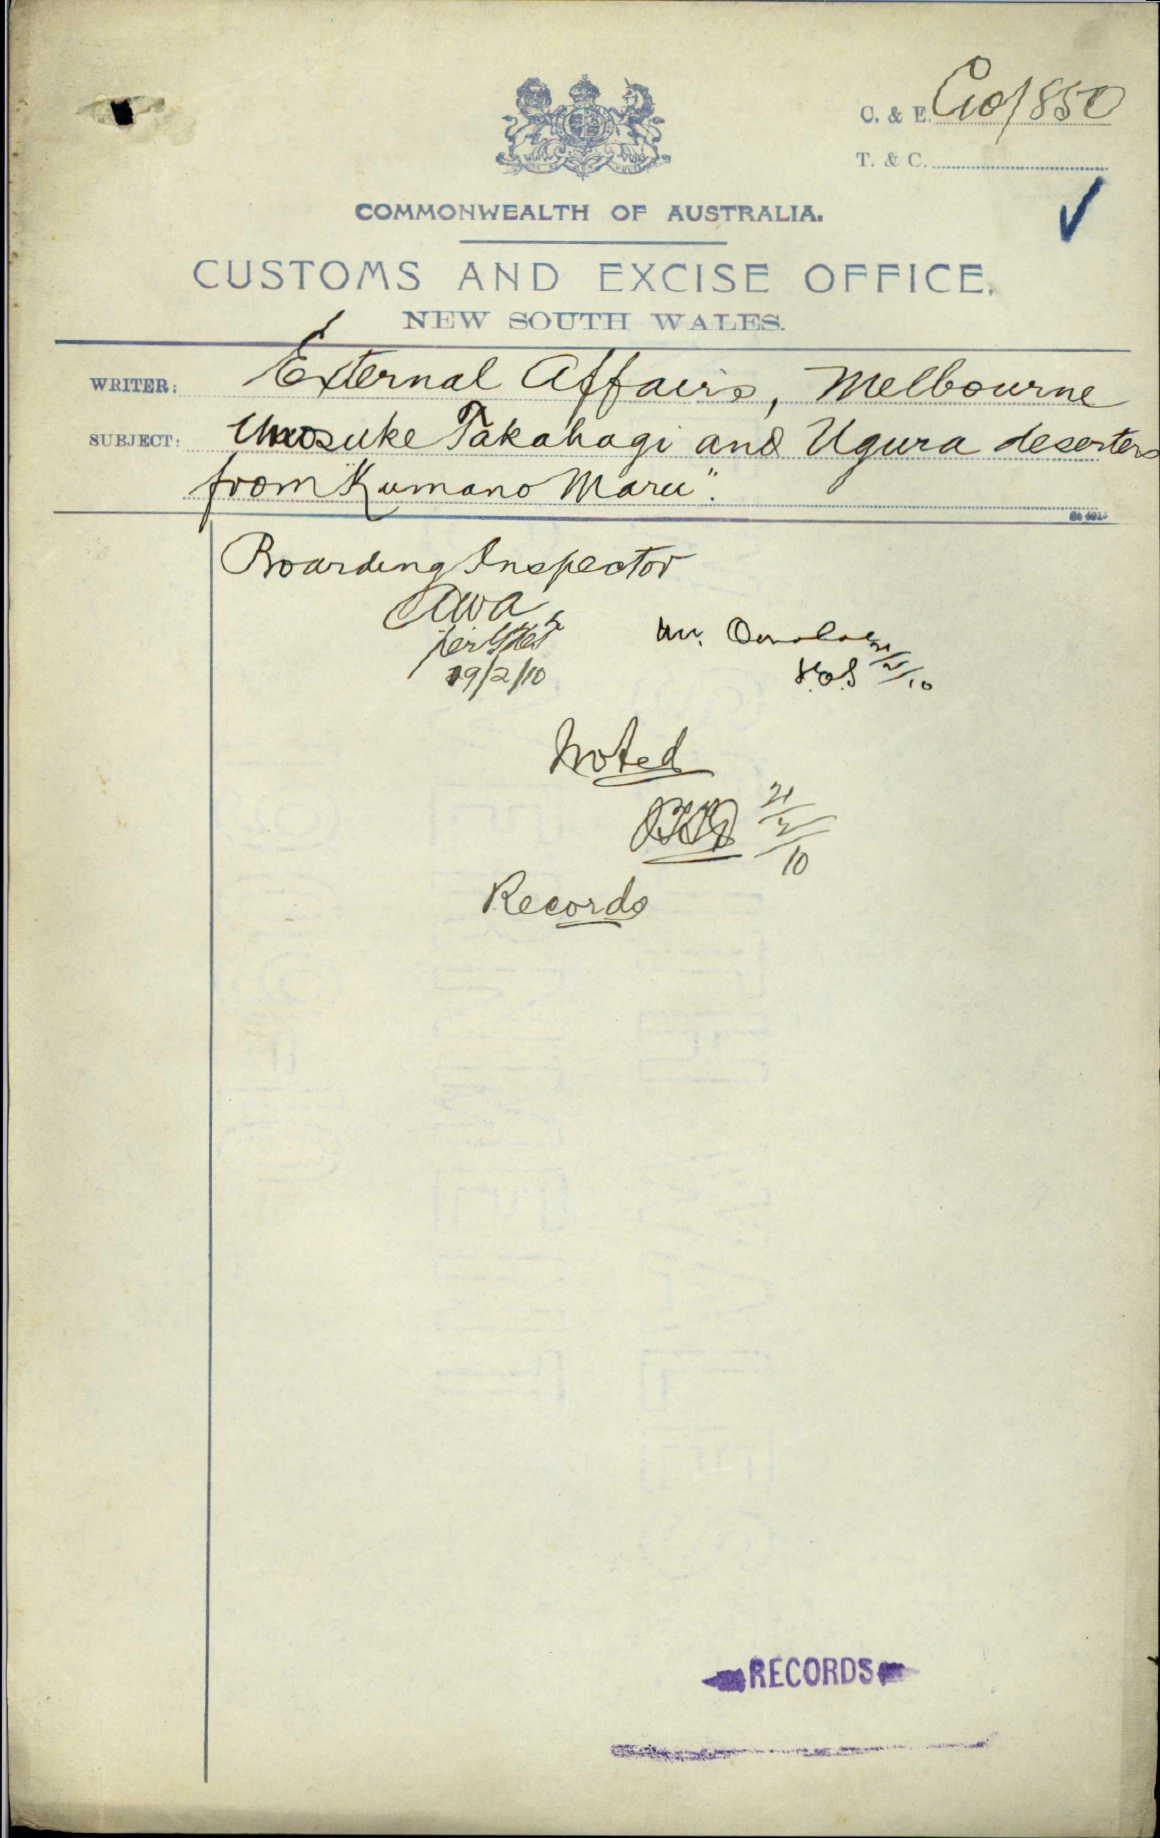 C. & E. C10/850
T. & C.
COMMONWEALTH OF AUSTRALIA.
CUSTOMS AND EXCISE OFFICE.
NEW SOUTH WALES.
WRITER: External Affairs, Melbourne
SUBJECT: Takahagi and Ugura deserters
from "Kumano Maru".
Boarding Inspector
AWA
19/2/10
Mr.
21/2/10
Noted
21/2/10
Records
RECORDS